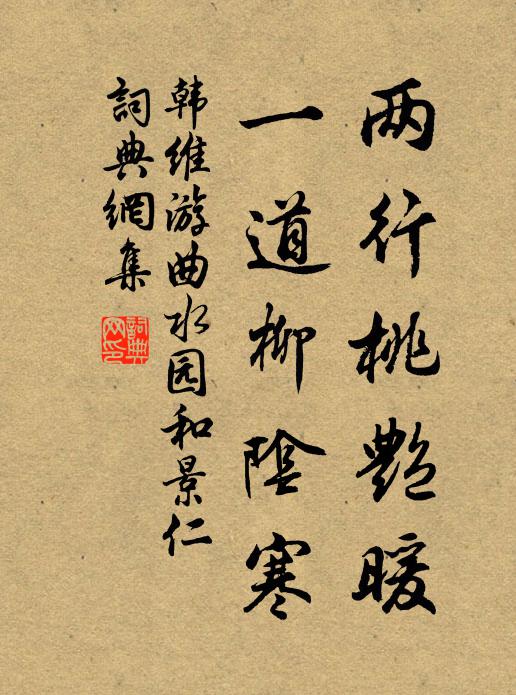 两行桃艷暖
一道柳陰寒
韩維游曲水园和景仁
詞典網集
詞典网印